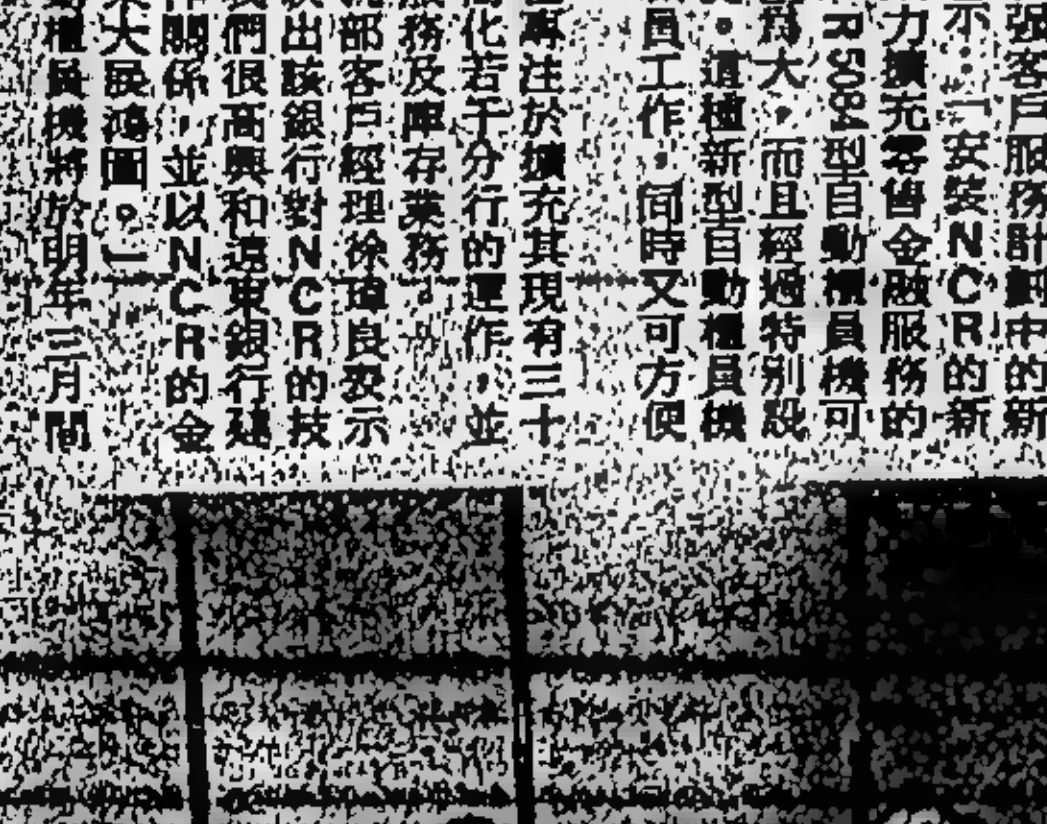 强客戶服務計劃中的新
示·「安裝NCR的新
力擴充零售金融服務的
R5084型自動櫃員機可
爲大,而且經過特別設
·這種新型自動櫃員機
員工作,同時又可方便
專注於擴充其現有三十
化若干分行的運作,並
務及庫存業務
部客戶經理徐瑋良表示
出該銀行對NCR的技
們很高興和遠東銀行建
關係,並以NCR的金
大展鴻圖。」
櫃員機將於明年三月間